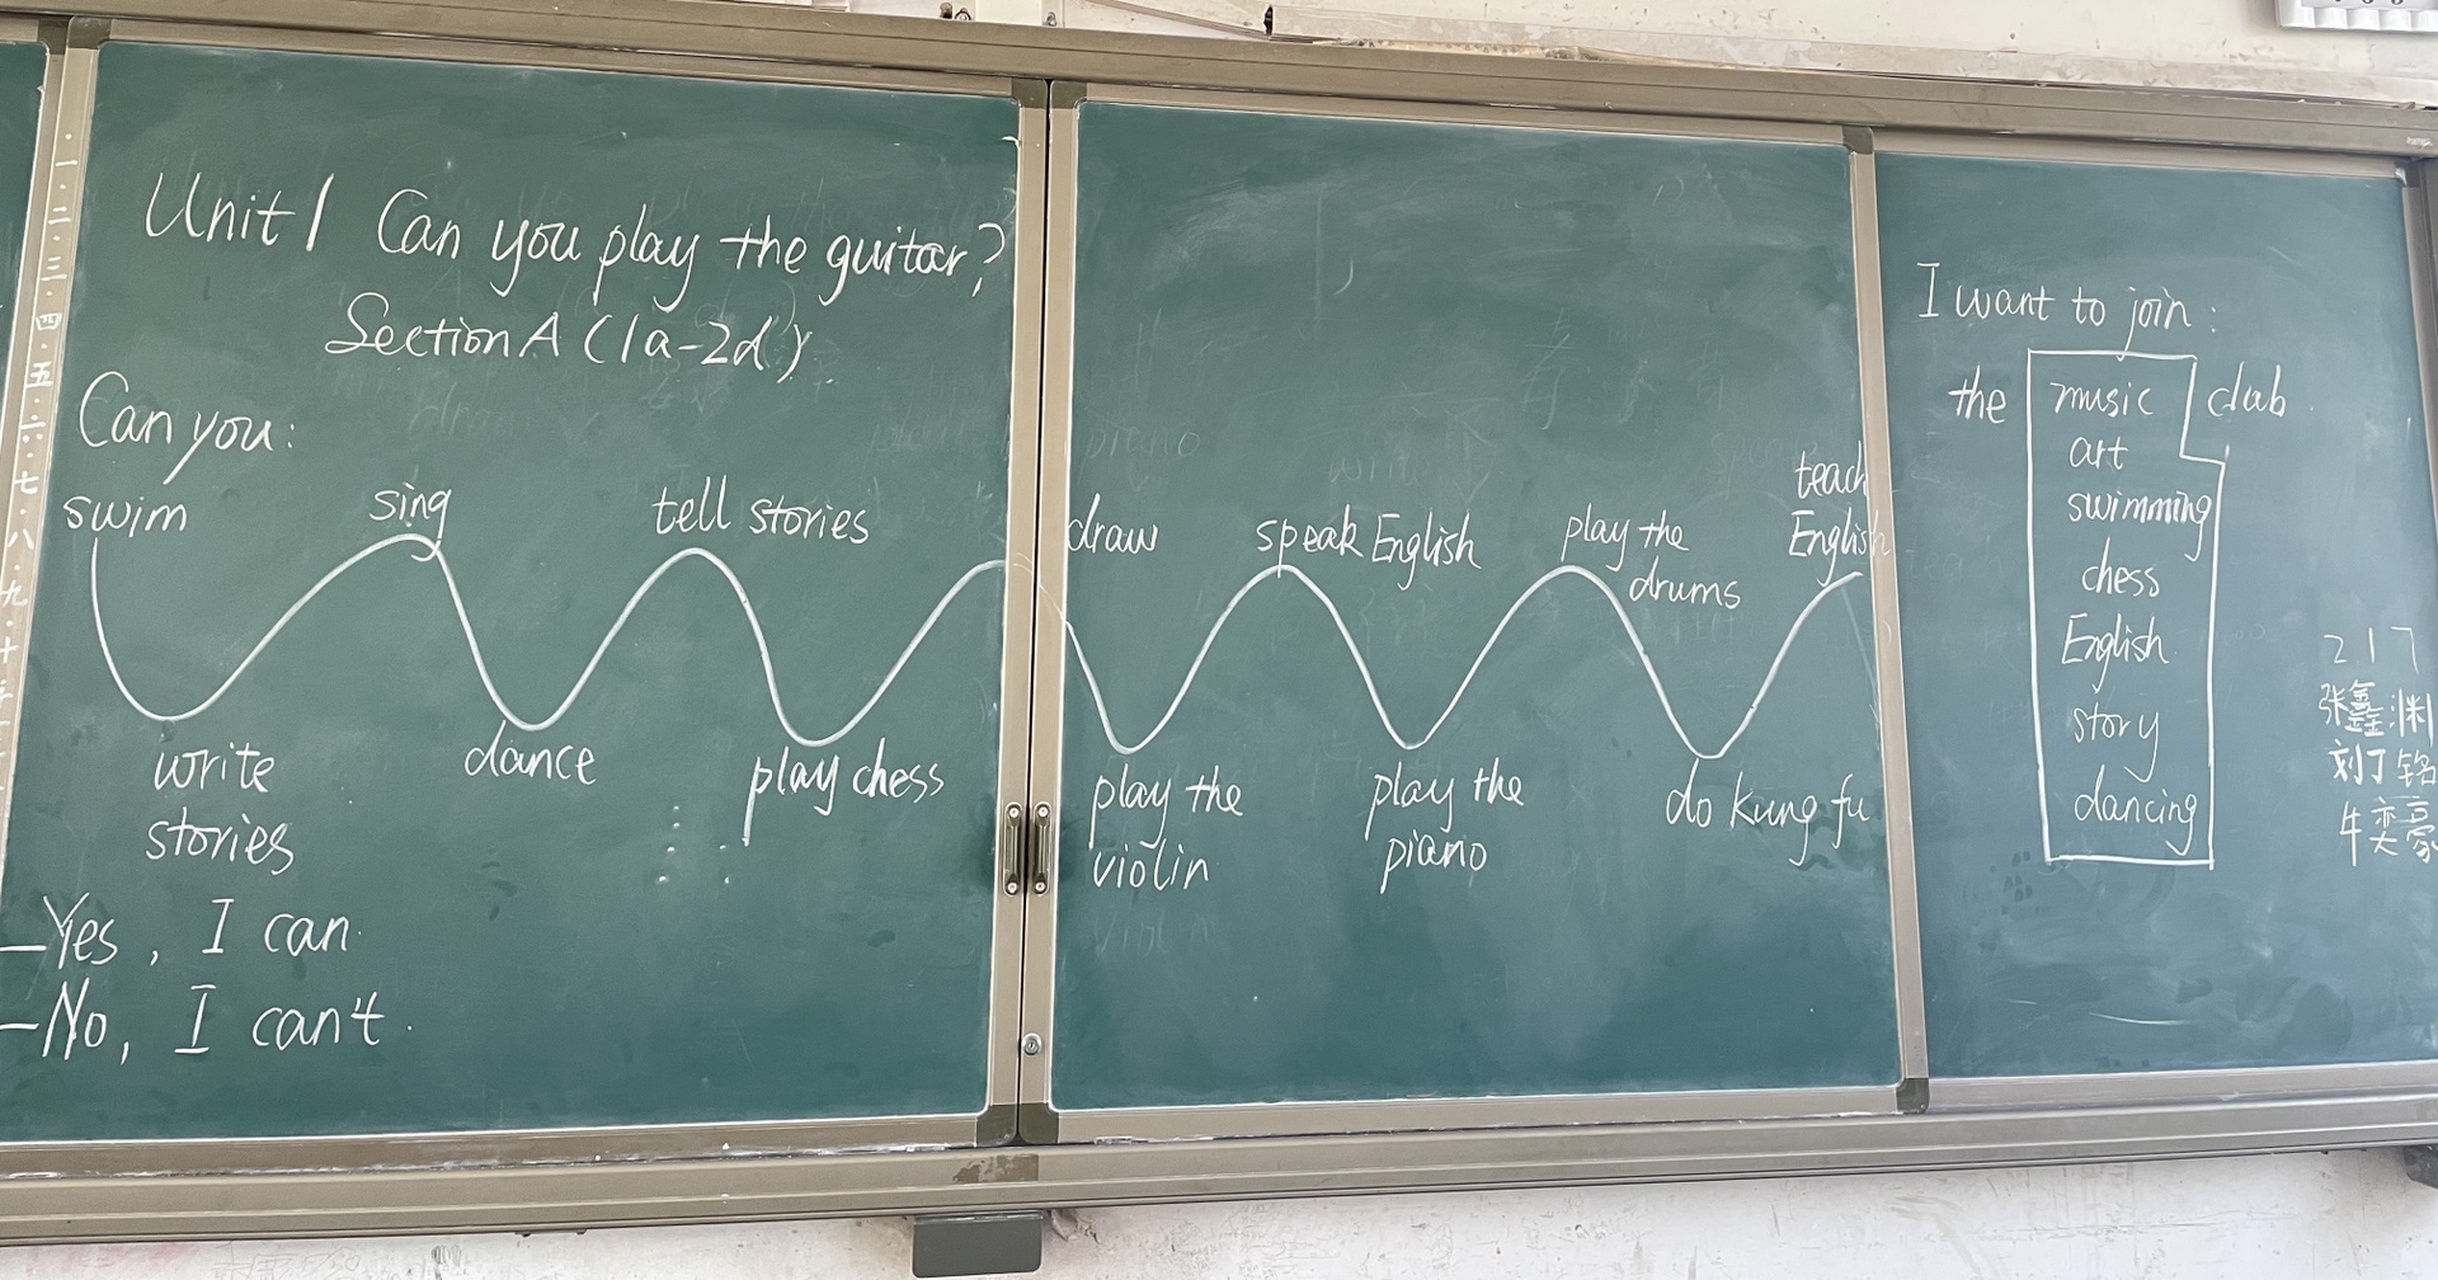 Unit 1 Can you play the guitar?
Section A (1a-2d)
Can you:
swim
sing
tell stories
draw
speak English
play the
drums
teach
English
write
stories
dance
play chess
play the
violin
play the
piano
do kung fu
-Yes, I can.
-No, I can't.
I want to join:
the music club.
art
swimming
chess
English
story
dancing
217
张鑫渊
刘丁铭
牛奕豪
一·二·三·四·五·六·七·八·九·十